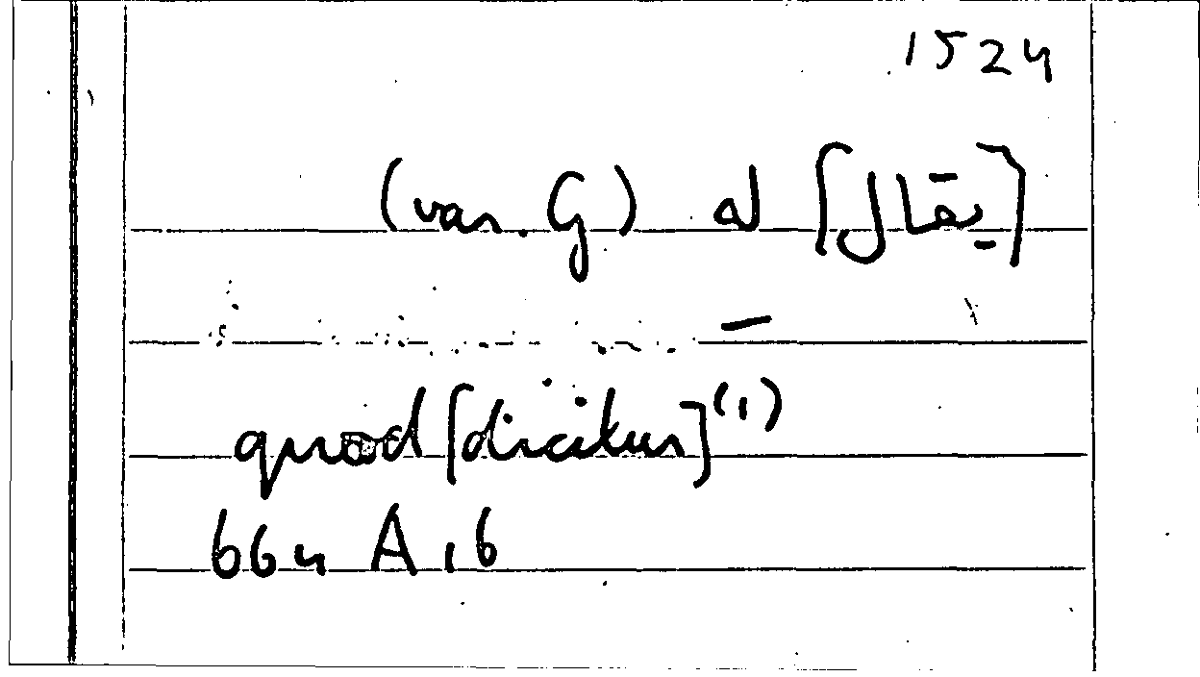 1524
(var. G) al
quod [dicitur] (1)
664 A 16